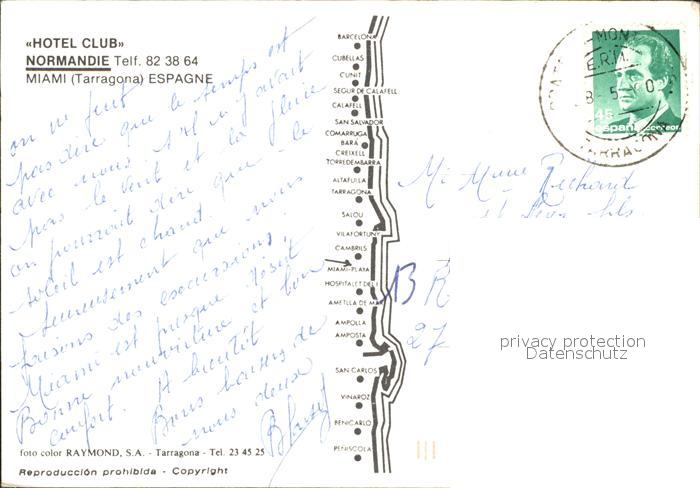 «HOTEL CLUB»
NORMANDIE Telf. 82 38 64
MIAMI (Tarragona) ESPAGNE
on ne peut
pas dire que le temps est
avec nous. S'il n'y avait
pas le vent et la pluie
on pourrait dire que le
soleil est chaud.
heureusement que nous
faisons des excursions,
Miami est presque désert
Bonne nourriture et bon
confort. A bientôt
Bons baisers de
nous deux
BARCELONA
CUBELLAS
CUNIT
SEGUR DE CALAFELL
CALAFELL
SAN SALVADOR
COMARRUGA
BARÁ
CREIXELL
TORREDEMBARRA
ALTAFULLA
TARRAGONA
SALOU
VILAFORTUNY
CAMBRILS
MIAMI-PLAYA
HOSPITALET DEL I.
AMETLLA DE MAR
AMPOLLA
AMPOSTA
SAN CARLOS
VINAROZ
BENICARLO
PEÑISCOLA
45
españa correos
TARRAGONA
Mr Mme Richard
et leur fils
13 R
27
privacy protection
Datenschutz
foto color RAYMOND, S.A. - Tarragona - Tel. 23 45 25
Reproducción prohibida - Copyright